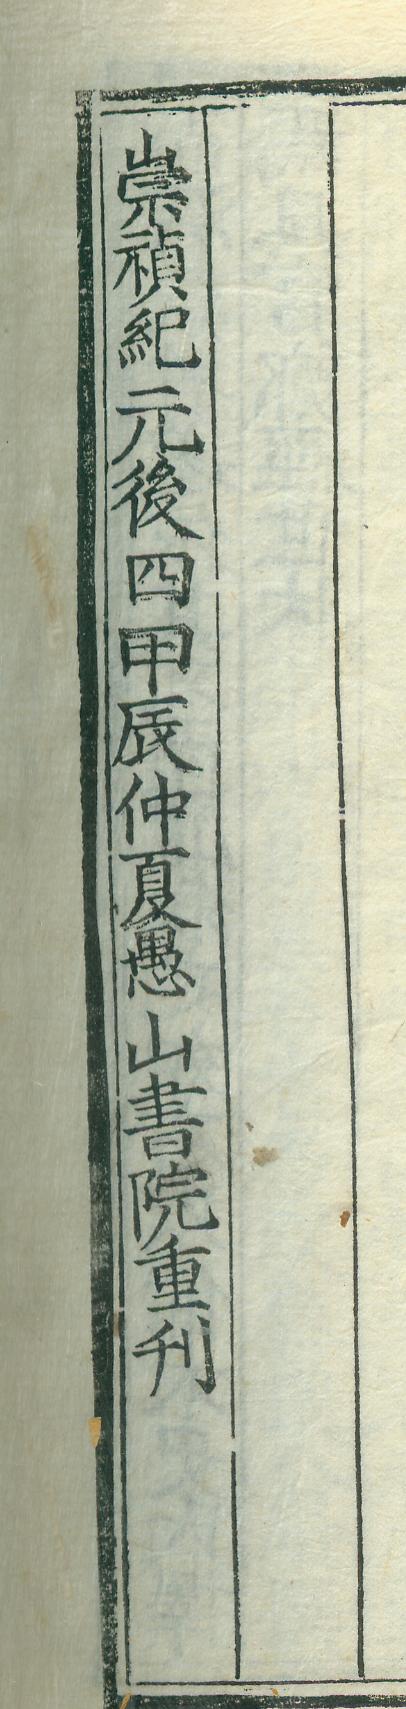 崇禎紀元後四甲辰仲夏愚山書院重刊